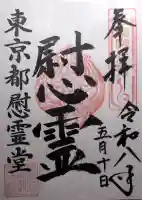 奉拝
令和八年
五月十日
慰霊
東京都慰霊堂